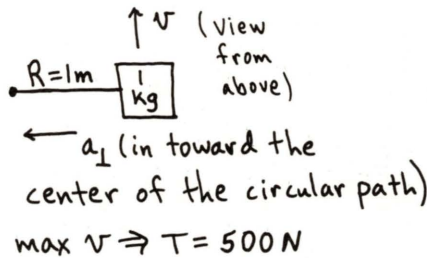 v (view
from
above)
R=1m
1
kg
a⊥ (in toward the
center of the circular path)
max v ⇒ T = 500 N